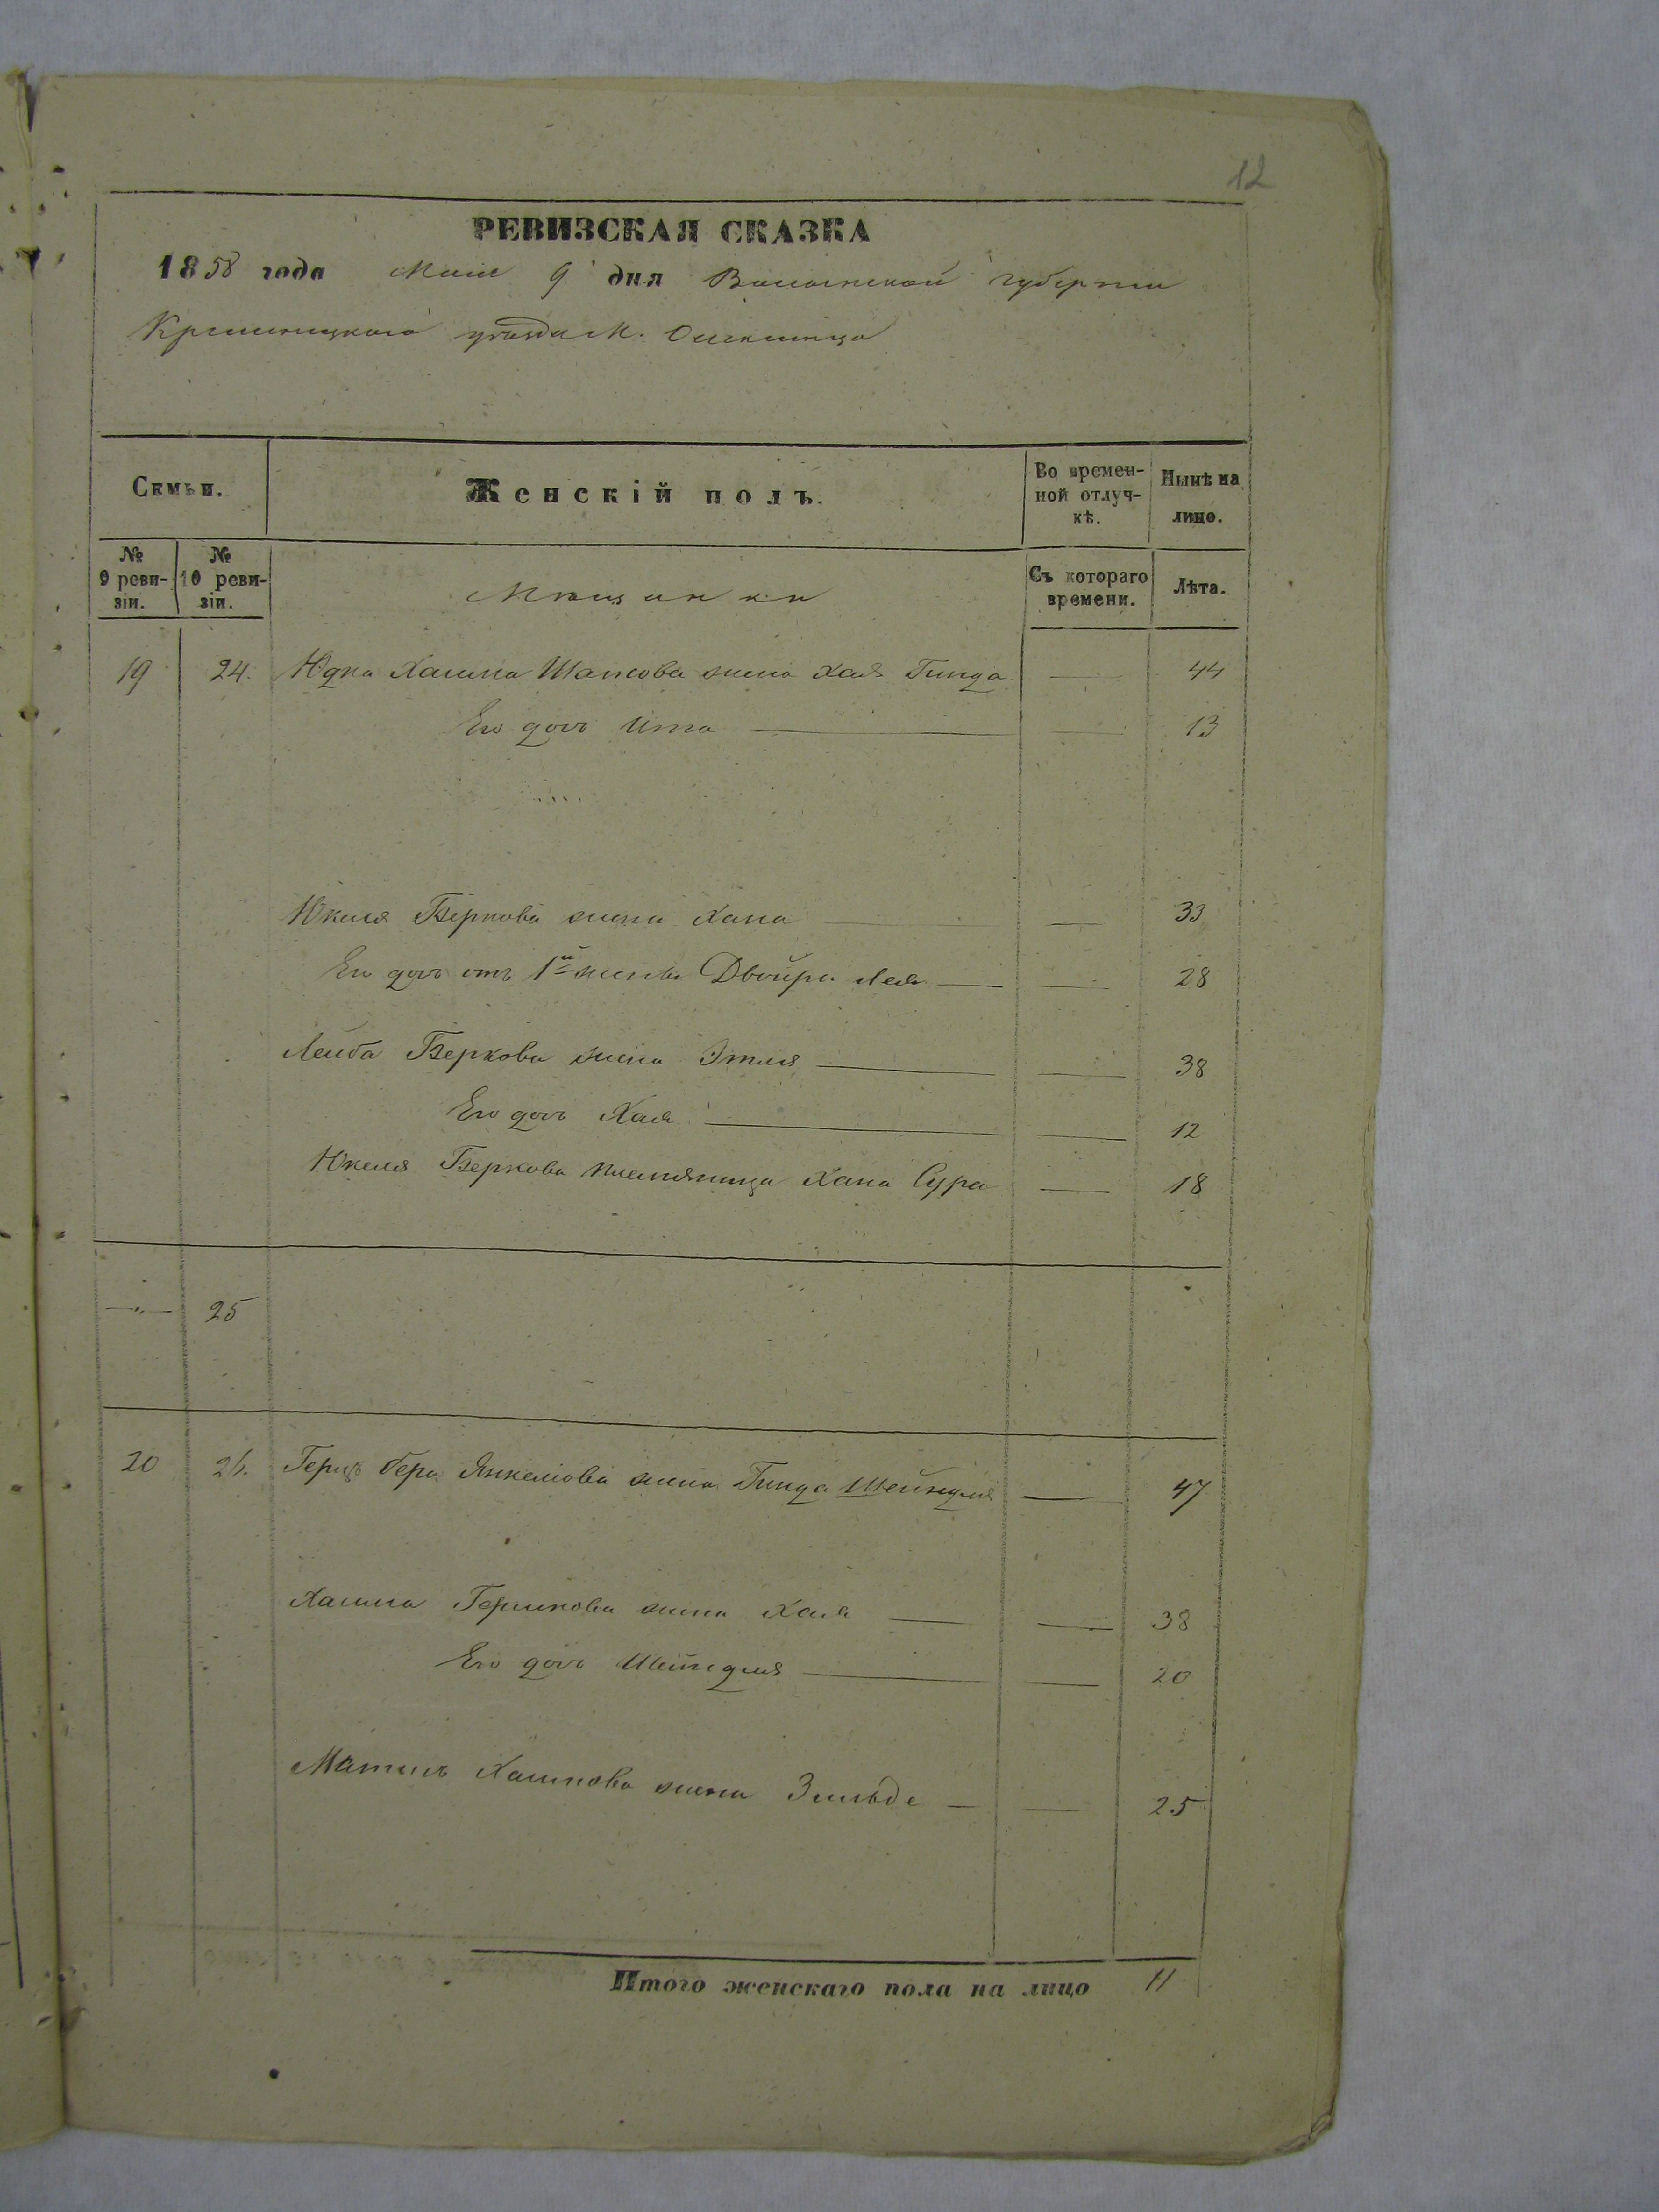 12
РЕВИЗСКАЯ СКАЗКА
1858 года Маія 9 дня Волынской губерніи
Кременецкаго уѣзда М.
Семьи.
Женскій полъ.
Во времен-
ной отлуч-
кѣ.
Нынѣ на
лицо.
№
9 реви-
зіи.
№
10 реви-
зіи.
Мѣщанки
Съ котораго
времени.
Лѣта.
19 24. Юдка Хаима жена Хая Гинда — 44
Его дочь Ита — — 13
Юкеля Беркова жена Хана — — 33
Его дочь отъ 1й жены Двойра Лея — — 28
Лейба Беркова жена Этля — — 38
Его дочь Хая — — 12
Юкеля Беркова племянница Хана Сура — 18
—"— 25
20 26. Герцъ Бера Янкелiова жена Гинда Шейндля — 47
Хаима Гершкова жена Хая — — 38
Его дочь Шейндля — — 20
Хаимова жена — — 25
Итого женскаго пола на лицо 11